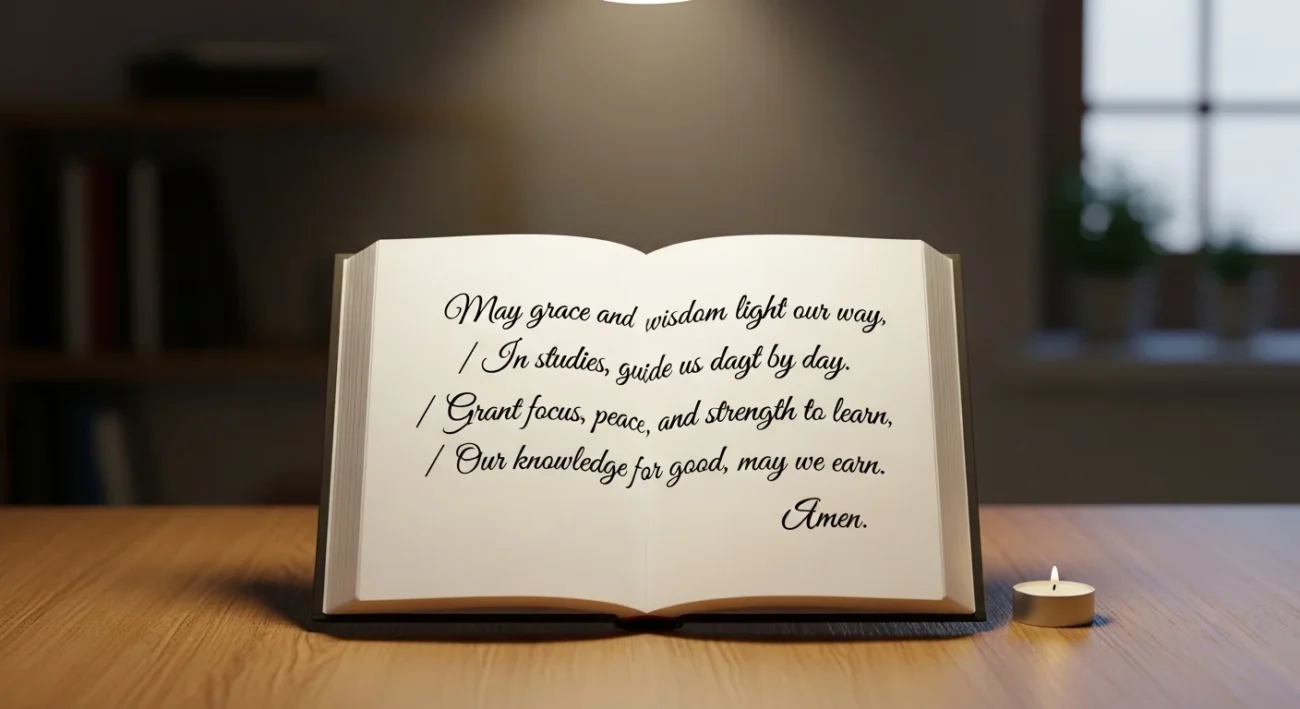 May grace and wisdom light our way,
/ In studies, guide us dayt by day.
/ Grant focus, peace, and strength to learn,
/ Our knowledge for good, may we earn.
Amen.